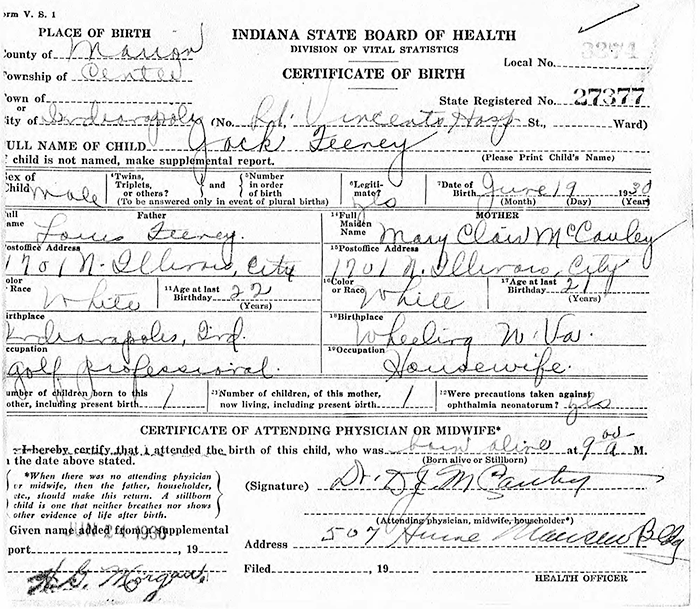 orm V. S. 1
PLACE OF BIRTH
INDIANA STATE BOARD OF HEALTH
DIVISION OF VITAL STATISTICS
CERTIFICATE OF BIRTH
County of Marion
Local No. 3274
Township of Center
Town of
or
City of Indianapolis (No. St. Vincents Hosp St., Ward)
State Registered No. 27377
FULL NAME OF CHILD Jack Feeney
f child is not named, make supplemental report.
(Please Print Child's Name)
Sex of Child Male
⁴Twins, Triplets, or others? and ⁵Number in order of birth
(To be answered only in event of plural births)
⁶Legitimate? yes
⁷Date of Birth June 19 1930
(Month) (Day) (Year)
Father
Full Name Louis Feeney.
MOTHER
¹⁴Full Maiden Name Mary Clair McCauley
Postoffice Address
1701 N. Illinois, City
¹⁵Postoffice Address
1701 N. Illinois, City
Color or Race White
¹¹Age at last Birthday 22 (Years)
¹⁶Color or Race White
¹⁷Age at last Birthday 21 (Years)
Birthplace
Indianapolis, Ind.
¹⁸Birthplace
Wheeling W. Va.
Occupation
golf professional.
¹⁹Occupation
Housewife.
umber of children born to this
other, including present birth 1
²¹Number of children, of this mother,
now living, including present birth 1
²²Were precautions taken against
ophthalmia neonatorum? yes
CERTIFICATE OF ATTENDING PHYSICIAN OR MIDWIFE*
I hereby certify that I attended the birth of this child, who was born alive at 9 00 a M.
(Born alive or Stillborn)
n the date above stated.
*When there was no attending physician
or midwife, then the father, householder,
etc., should make this return. A stillborn
child is one that neither breathes nor shows
other evidence of life after birth.
(Signature) Dr. D J McCauley
(Attending physician, midwife, householder*)
Given name added from a supplemental
JUN 21 1930
port , 19
Address 507 Hume Mansur Bldg
H. G. Morgan.
Filed , 19
HEALTH OFFICER